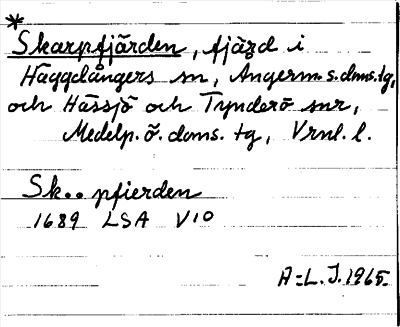 *
Skarpfjärden, fjärd i
Häggdångers sn, Ångerm. s. doms. tg,
och Hässjö och Tynderö snr,
Medelp. ö. doms. tg, Vrnl. l.
Sk.. pfierden
1689 LSA V10
A-L. J. 1965.